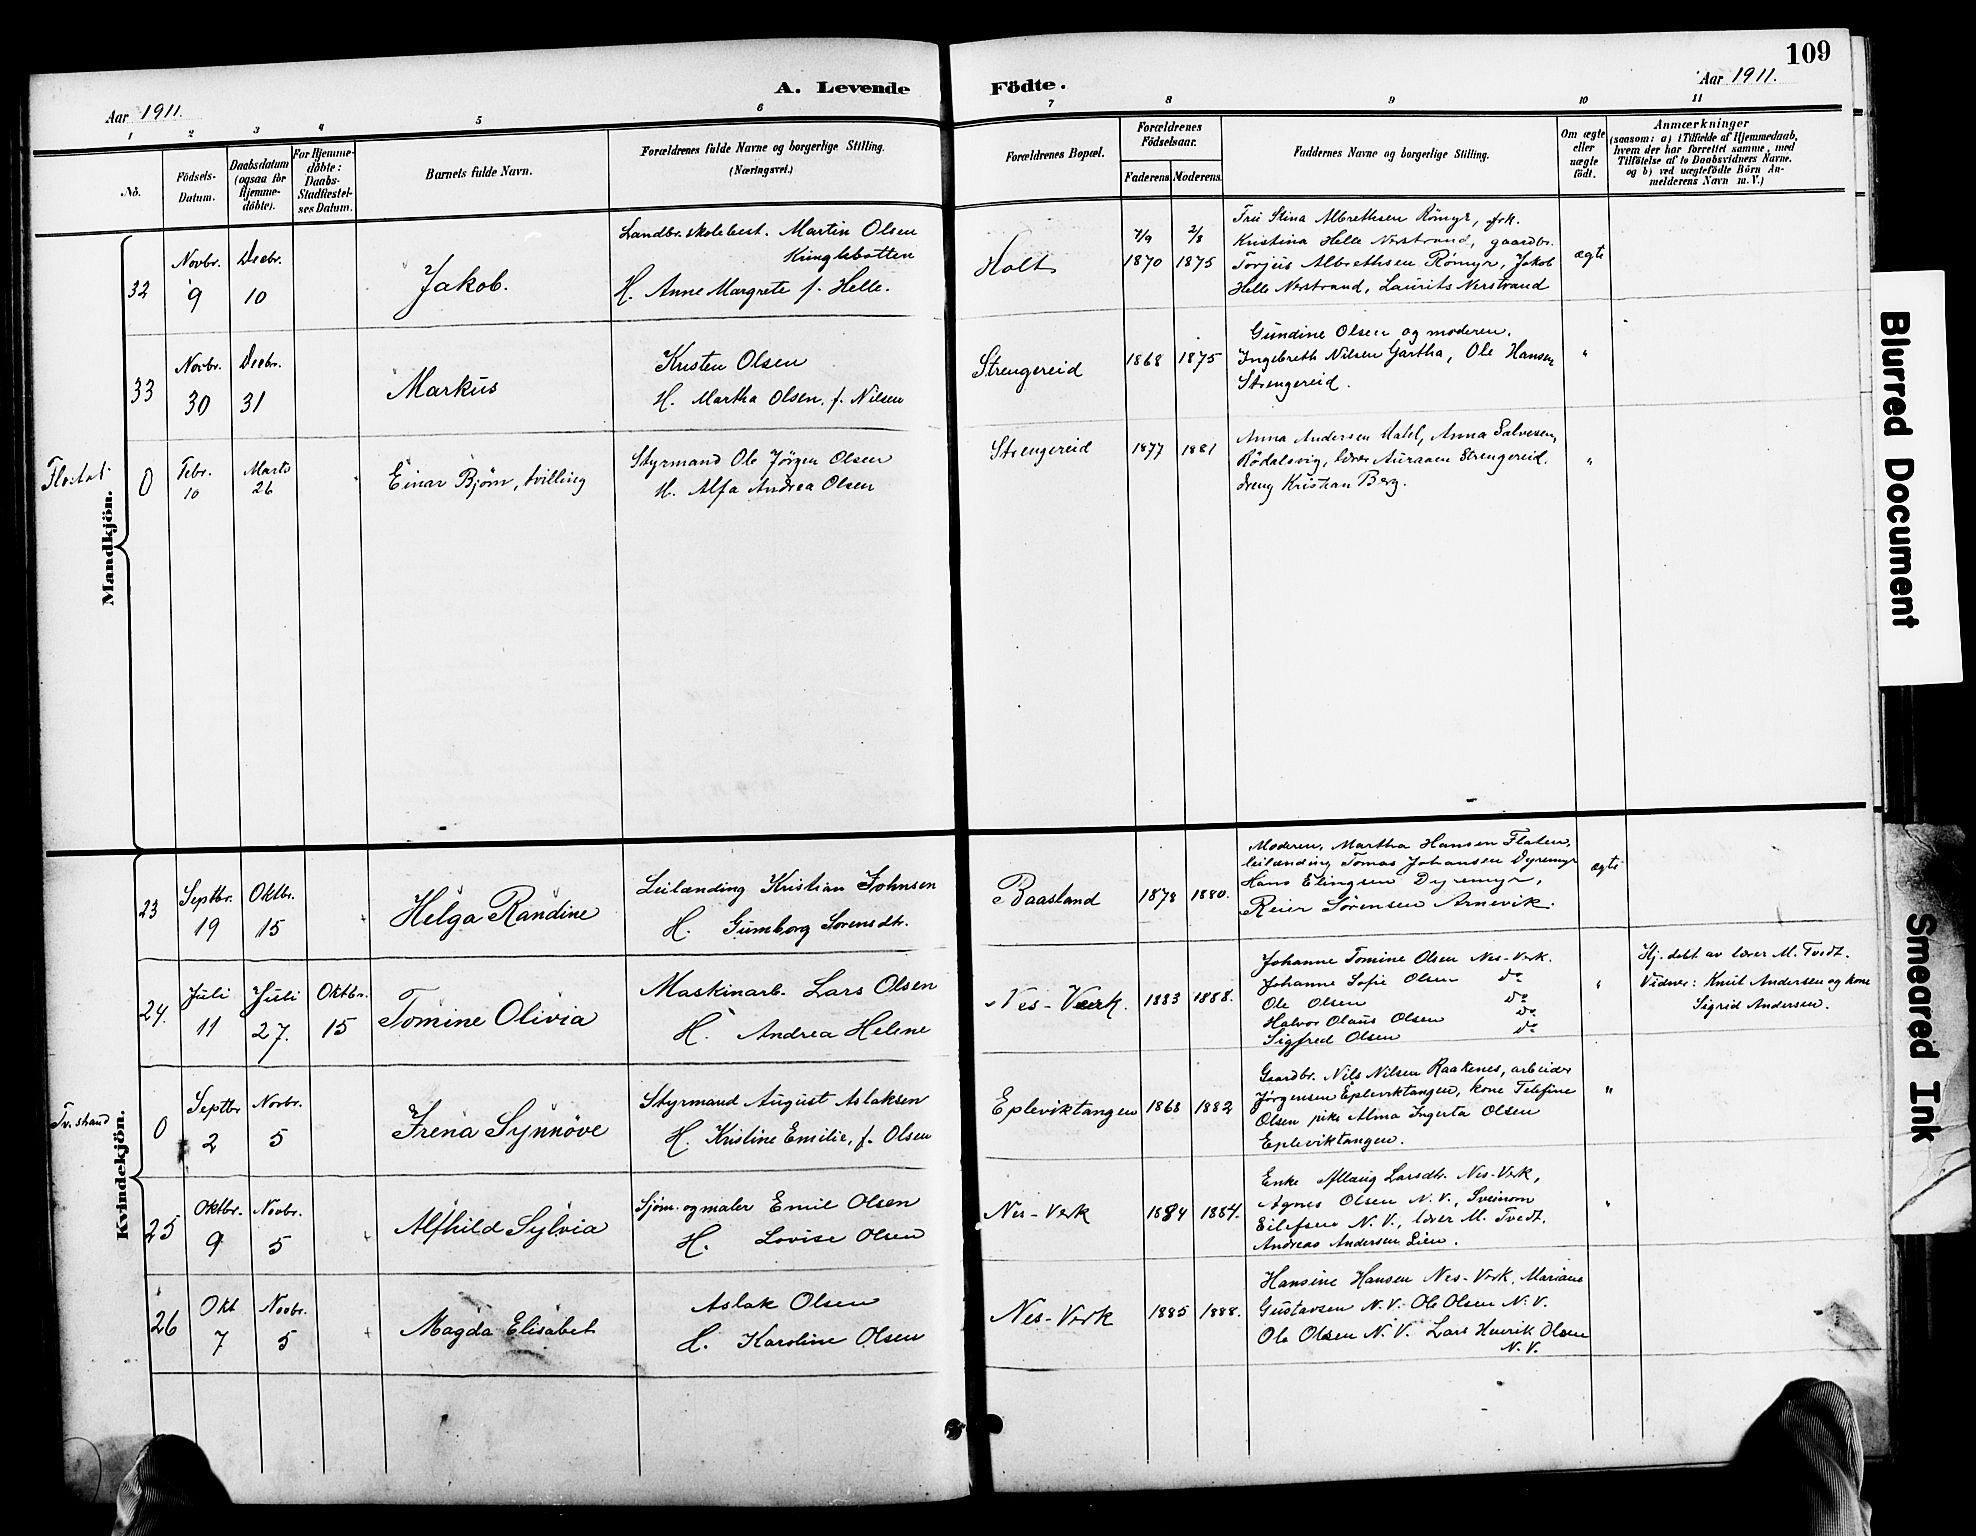 109
A. Levende Födte.
Aar 1911.
Aar 1911.
1 2 3 4 5 6 7 8 9 10 11
No.
Födsels-Datum.
Daabsdatum (ogsaa for Hjemme-döbte).
For Hjemme-döbte: Daabs-Stadfæstel-ses Datum.
Barnets fulde Navn.
Forældrenes fulde Navne og borgerlige Stilling.
(Næringsvei.)
Forældrenes Bopæl.
Forældrenes Födselsaar.
Faderens Moderens.
Faddernes Navne og borgerlige Stilling.
Om ægte eller uægte födt.
Anmærkninger
(saasom: a) i Tilfælde af Hjemmedaab,
hvem der har forrettet samme, med
Tilföielse af to Daabsvidners Navne.
og b) ved uægtefödte Börn An-
melderens Navn m. V.)
Mandkjön.
32
Novbr. 9
Decbr. 10
Jakob.
Landbr.skolebest. Martin Olsen
Kunglebotten
H. Anne Margrete f. Helle.
Holt
7/9 1870
2/8 1875
Fru Stina Albrethsen Rømyr, frk.
Kristina Helle Nerstrand, gaardbr.
Torjus Albrethsen Rømyr, Jakob
Helle Nerstrand, Laurits Nerstrand
ægte
33
Novbr. 30
Decbr. 31
Markus
Kristen Olsen
H. Martha Olsen, f. Nilsen
Strengereid
1868 1875
Gundine Olsen og moderen.
Ingebreth Nilsen Gartha, Ole Hansen
Strengereid.
"
0
Febr. 10
Marts 26
Einar Bjørn, tvilling
Styrmand Ole Jørgen Olsen
H. Alfa Andrea Olsen
Strengereid
1877 1881
Anna Andersen Anna Salvesen,
Rødalsvig, lærer Strengereid.
dreng Kristian Berg.
"
Kvindekjön.
23
Septbr. 19
Oktbr. 15
Helga Randine
Leilænding Kristian Johnsen
H. Gumborg Sorensdtr.
Baasland
1878 1880.
Moderen, Martha Hansen Flaten,
leilænding Tomas Johansen Dyremyr
Hans Elingsen Dyremyr,
Reier Sørensen Arnevik.
ægte
24.
Juli 11
Juli 27.
Oktbr. 15
Tomine Olivia
Maskinarb. Lars Olsen
H. Andrea Helene
Nes-Værk.
1883 1888.
Johanne Tomine Olsen Nes-Verk.
Johanne Sofie Olsen do
Ole Olsen do
Halvor Olaus Olsen do
Sigfred Olsen do
"
Hj. debt av lærer M. Tvedt.
Vidner: Knut Andersen og kone
Sigrid Andersen.
Tvedestrand
0
Septbr 2
Novbr. 5
Irena Synnøve
Styrmand August Aslaksen
H. Kristine Emilie, f. Olsen
Epleviktangen
1868 1882
Gaardbr. Nils Nilsen Raakenes, arbeider
Jørgensen Epleviktangen, kone Telefine
Olsen pike Alma Ingerta Olsen
Epleviktangen.
"
25
Oktbr. 9
Novbr. 5
Alfhild Sylvia
Sjøm. og maler Emil Olsen
H. Lovise Olsen
Nes-Verk
1884 1884.
Enke Aslaug Larsdtr. Nes-Verk,
Agnes Olsen N.V., Sveinom
Eilefsen N.V., lærer M. Tvedt.
Andreas Andersen Lien.
"
26
Okt 7
Novbr. 5
Magda Elisabet
Aslak Olsen
H. Karoline Olsen
Nes-Verk
1885 1888.
Hansine Hansen Nes-Verk, Mariane
Gustavsen N.V. Ole Olsen N.V.
Ole Olsen N.V. Lars Henrik Olsen
N.V.
Blurred Document
Smeared Ink